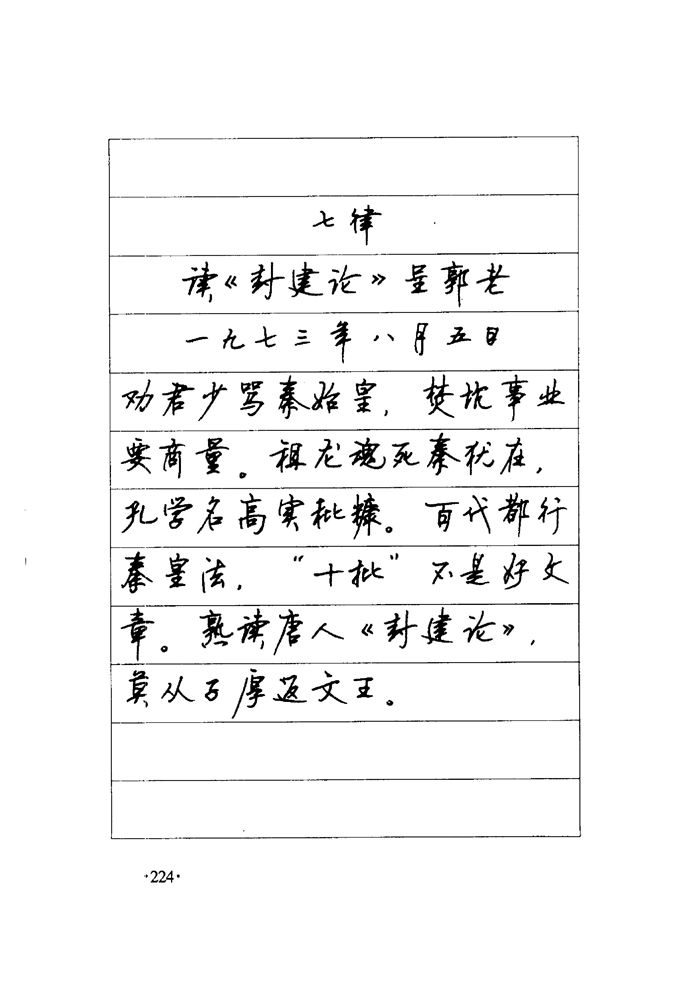 七律
读《封建论》呈郭老
一九七三年八月五日
劝君少骂秦始皇，焚坑事业
要商量。祖龙魂死秦犹在，
孔学名高实秕糠。百代都行
秦皇法，“十批”不是好文
章。熟读唐人《封建论》，
莫从子厚返文王。
·224·